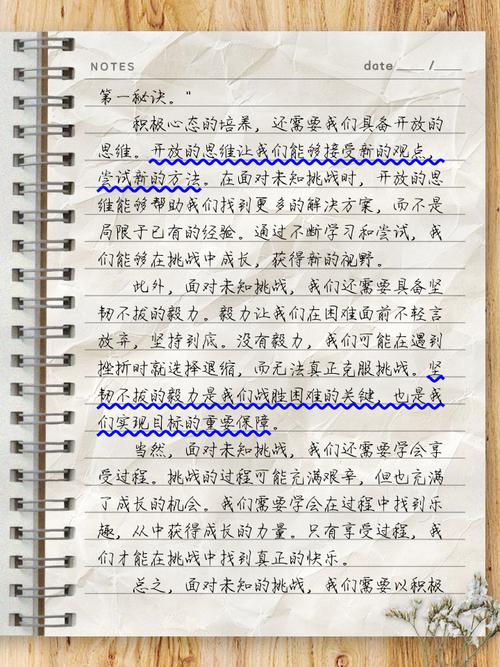 NOTES date ____ / ____
第一秘诀。"
积极心态的培养，还需要我们具备开放的
思维。开放的思维让我们能够接受新的观点，
尝试新的方法。在面对未知挑战时，开放的思
维能够帮助我们找到更多的解决方案，而不是
局限于已有的经验。通过不断学习和尝试，我
们能够在挑战中成长，获得新的视野。
此外，面对未知挑战，我们还需要具备坚
韧不拔的毅力。毅力让我们在困难面前不轻言
放弃，坚持到底。没有毅力，我们可能在遇到
挫折时就选择退缩，而无法真正克服挑战。坚
韧不拔的毅力是我们战胜困难的关键，也是我
们实现目标的重要保障。
当然，面对未知挑战，我们还需要学会享
受过程。挑战的过程可能充满艰辛，但也充满
了成长的机会。我们需要学会在过程中找到乐
趣，从中获得成长的力量。只有享受过程，我
们才能在挑战中找到真正的快乐。
总之，面对未知的挑战，我们需要以积极